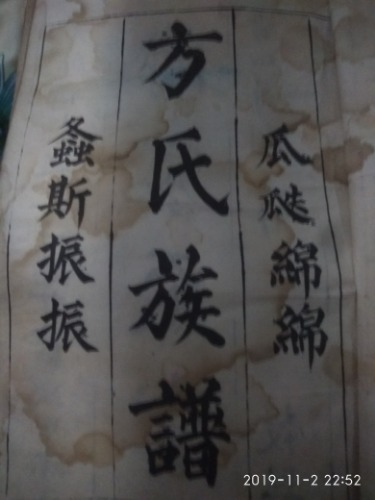 瓜瓞綿綿
方氏族譜
螽斯振振
2019-11-2 22:52